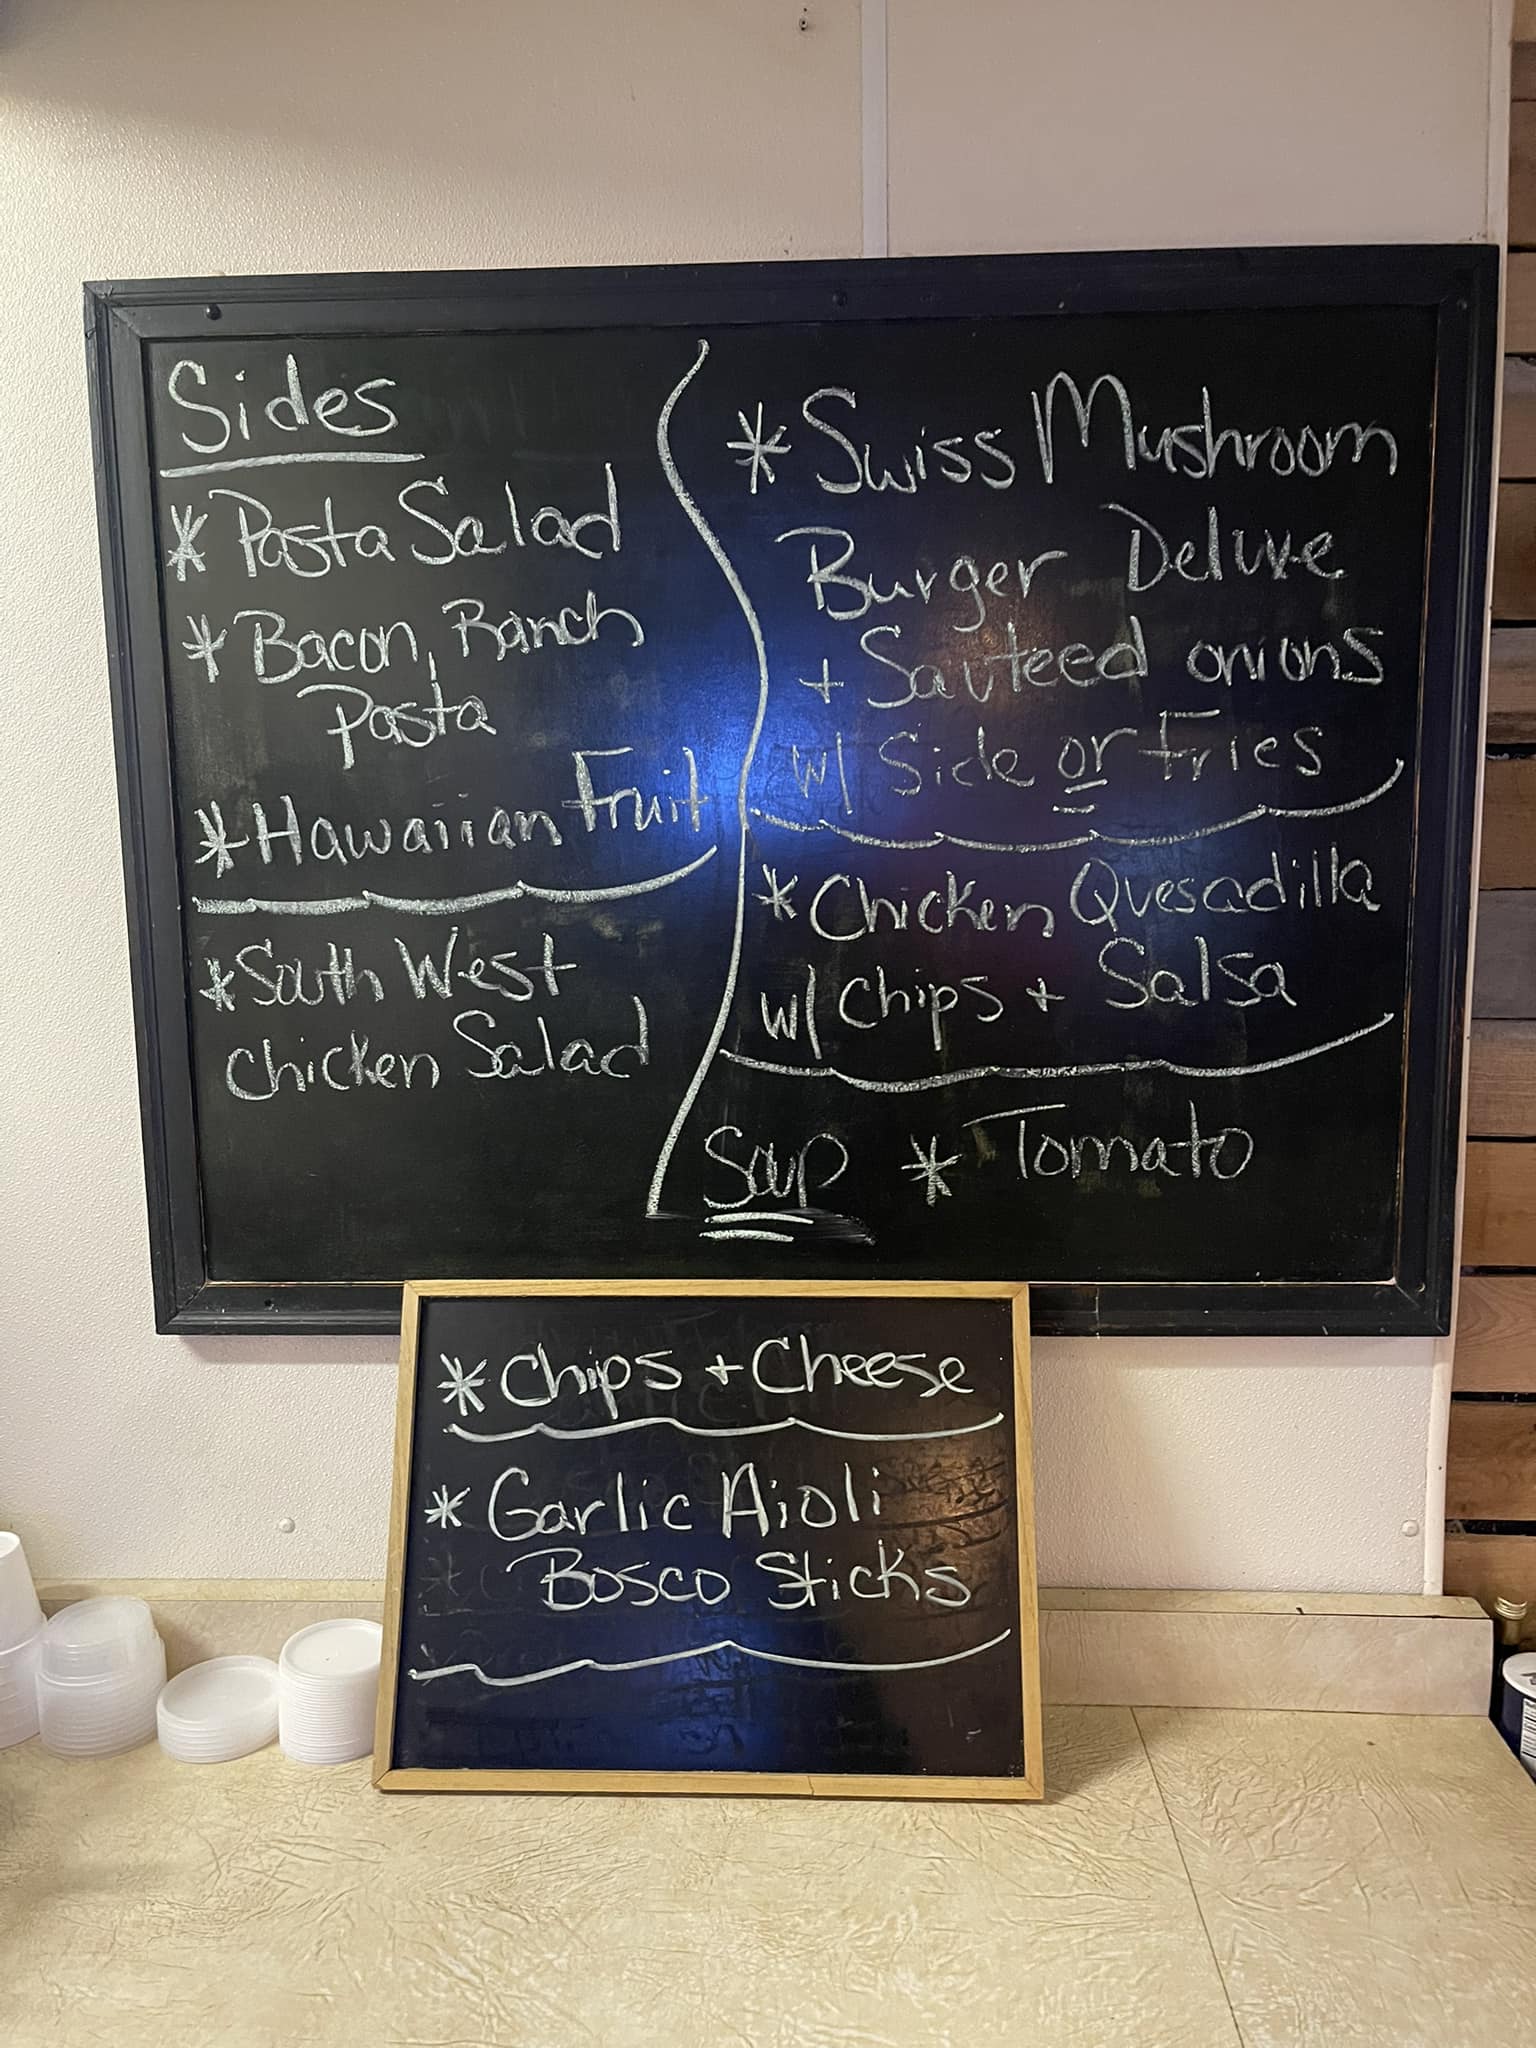 Sides
* Pasta Salad
* Bacon, Ranch
Pasta
* Hawaiian Fruit
* South West
Chicken Salad
* Swiss Mushroom
Burger Deluxe
+ Sauteed onions
w/ Side or Fries
* Chicken Quesadilla
w/ Chips + Salsa
Soup * Tomato
* Chips + Cheese
* Garlic Aioli
Bosco Sticks